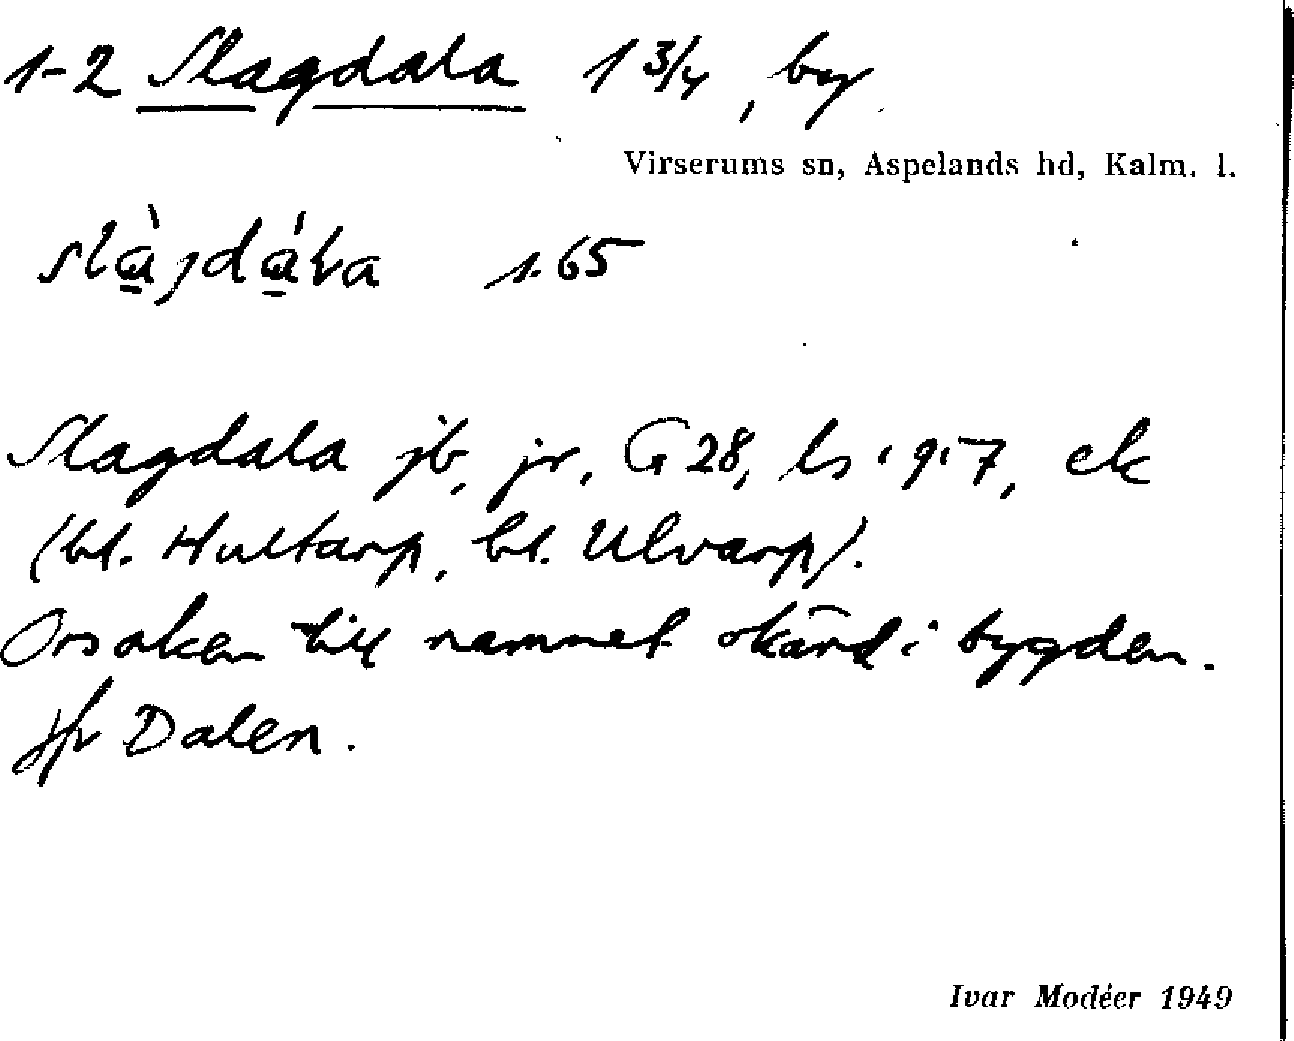 1-2 Slagdala 1 3/4, by
Virserums sn, Aspelands hd, Kalm. l.
slàgdála s. 65
Slagdala jb, jr, G 28, ls 1917, ek
(bl. Hultarp, bl. Ulvarp).
Orsaken till namnet okänd i bygden.
Jfr Dalen.
Ivar Modéer 1949